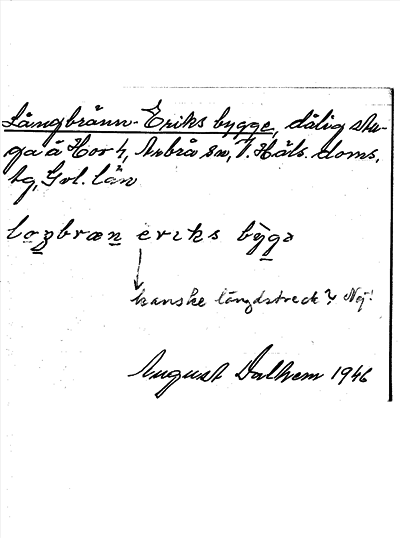 Långbränn-Eriks bygge, dålig stu-
ga å Hov 4, Arbrå sn, V. Häls. doms.
tg, Gvl. län
loŋbræn eriks byga
kanske längdstreck? Nej!
August Dalhem 1946